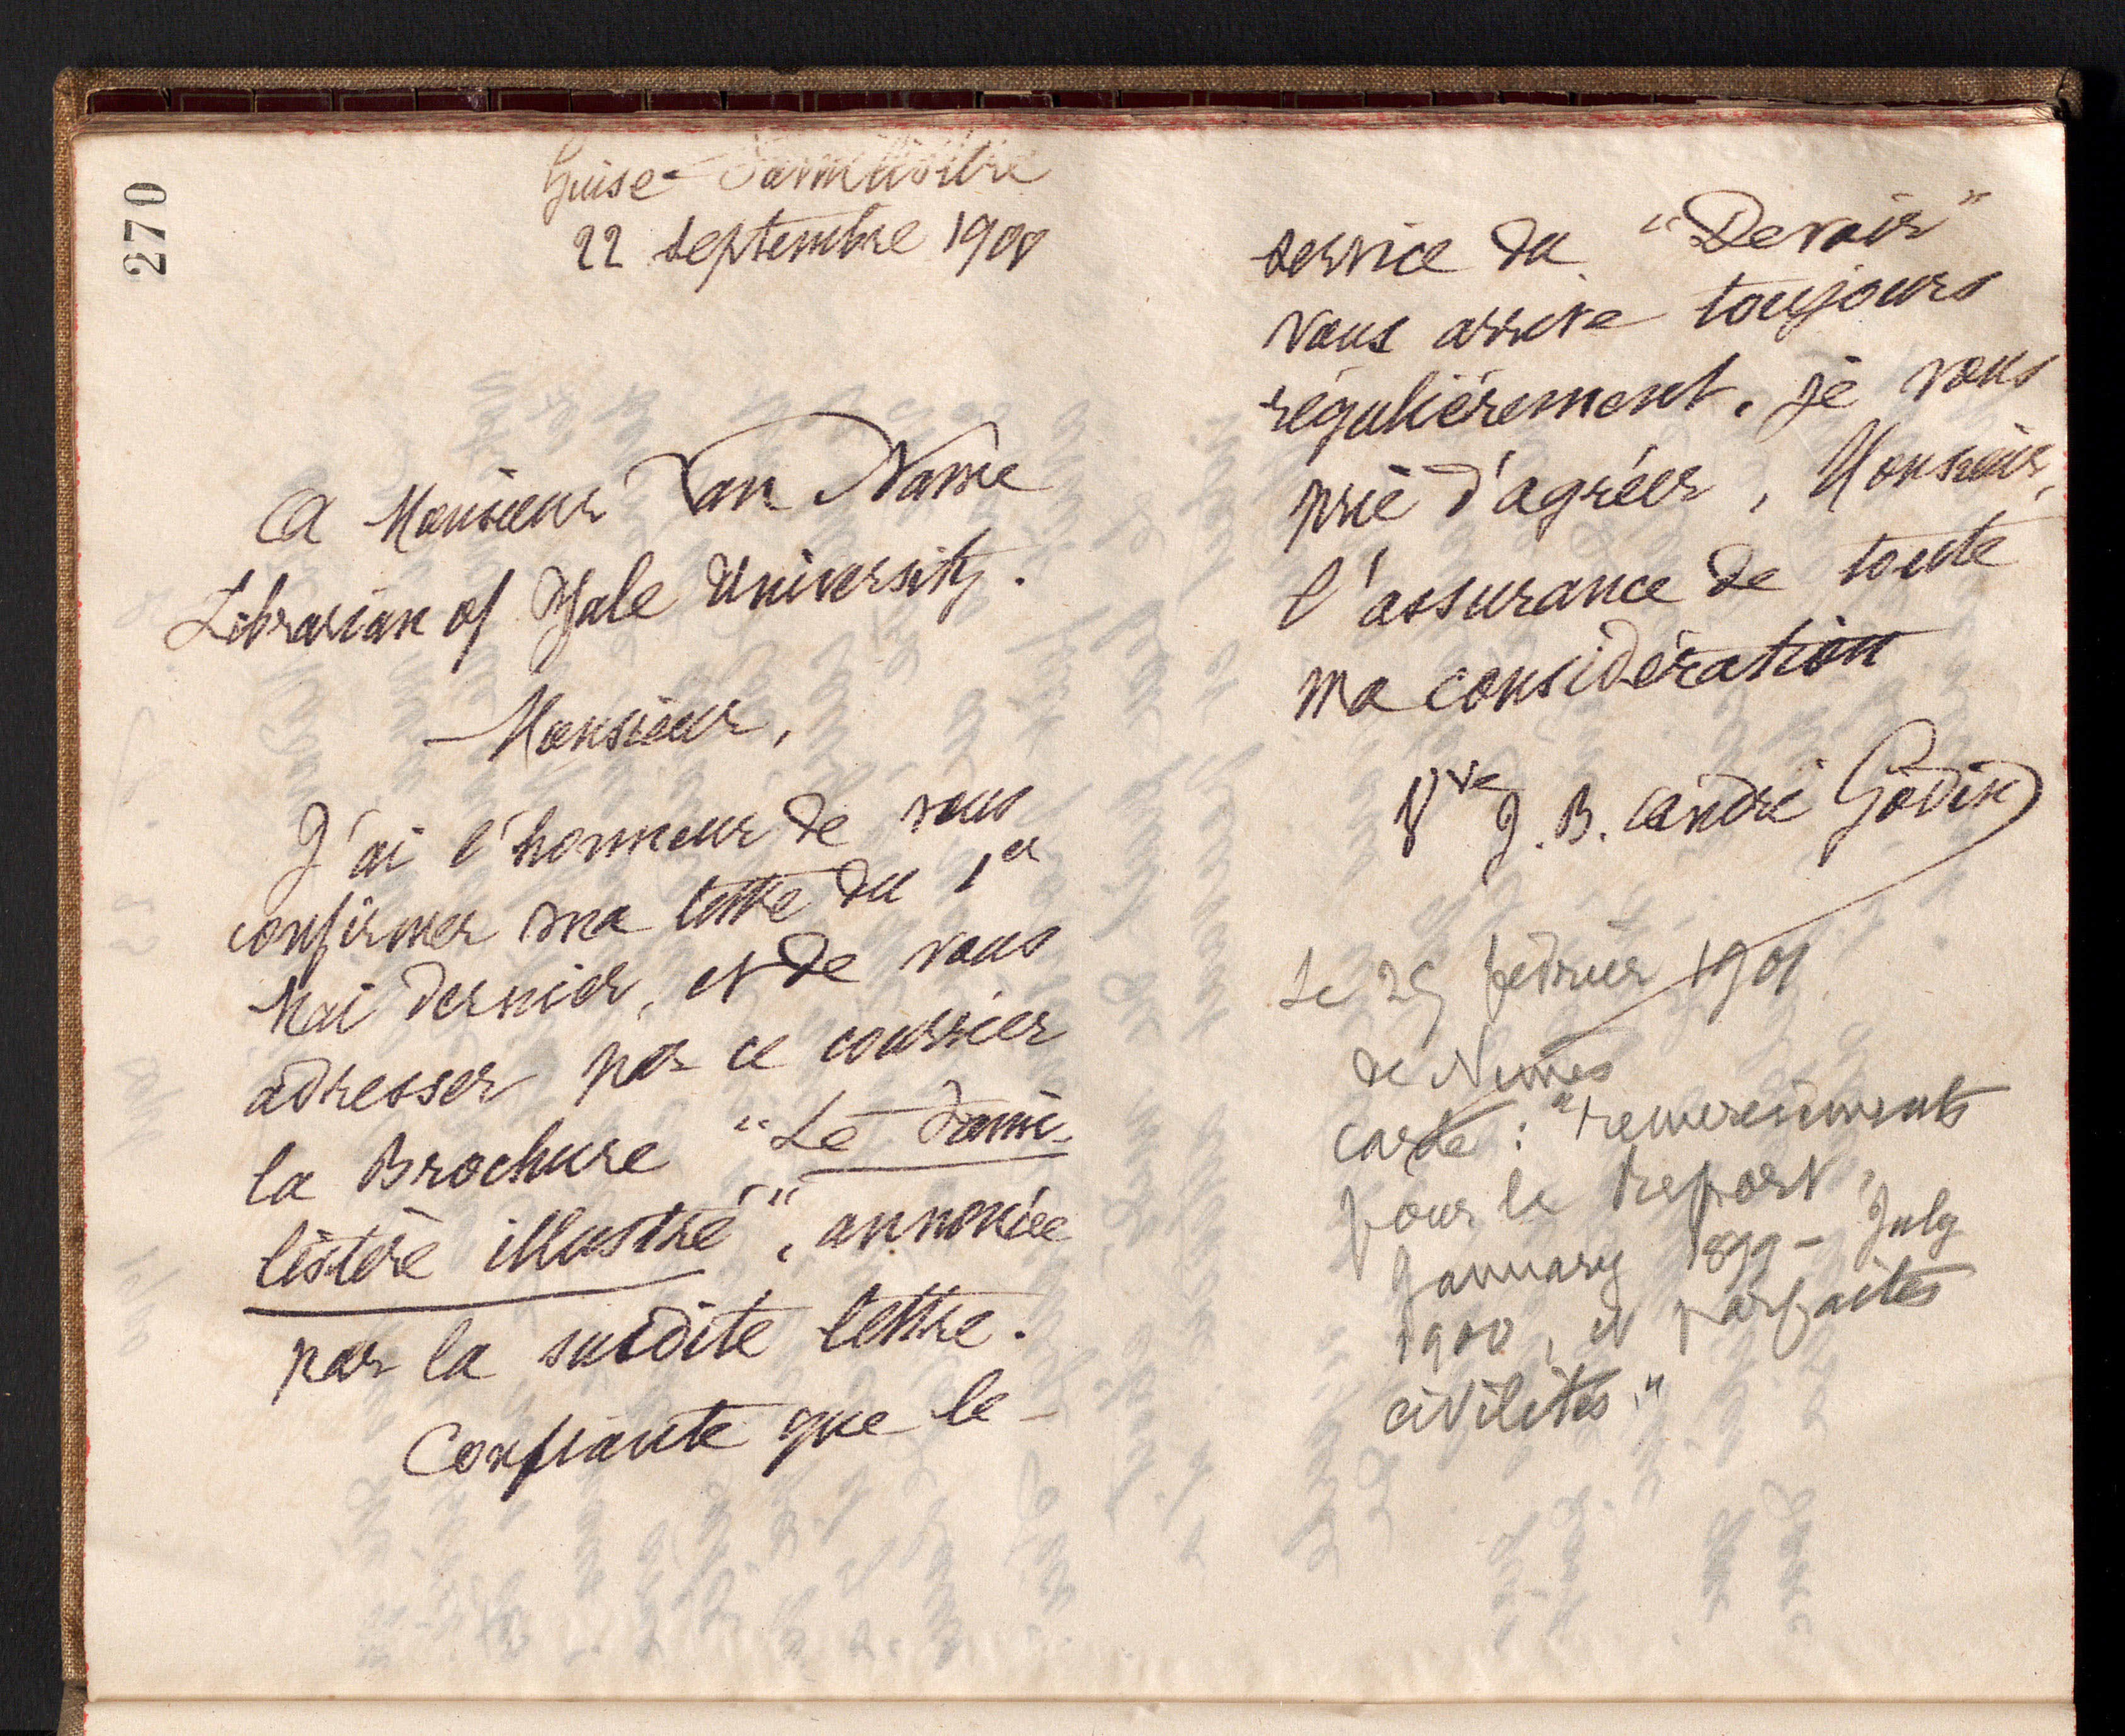 270
Guise Familistère
22 septembre 1900
A Monsieur Van Name
Librarian of Yale University.
Monsieur,
J'ai l'honneur de vous
confirmer ma lettre du 1er
Mai dernier, et de vous
adresser par ce courrier
la Brochure "Le Fami-
listère illustré", annoncée
par la susdite lettre.
Confiante que le
service du "Devoir"
vous arrive toujours
régulièrement, je vous
prie d'agréer, Monsieur,
l'assurance de toute
ma considération
Vve J. B. André Godin
Le 25 février 1901
de Nimes
carte: "remerciements
pour le Report,
January 1899 - July
1900, et parfaites
civilités."